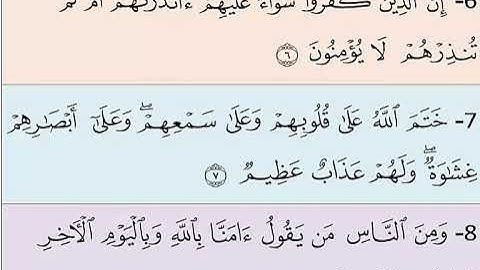 6- إِنَّ ٱلَّذِينَ كَفَرُوا۟ سَوَآءٌ عَلَيْهِمْ ءَأَنذَرْتَهُمْ أَمْ لَمْ
تُنذِرْهُمْ لَا يُؤْمِنُونَ ٦
7- خَتَمَ ٱللَّهُ عَلَىٰ قُلُوبِهِمْ وَعَلَىٰ سَمْعِهِمْ ۖ وَعَلَىٰٓ أَبْصَـٰرِهِمْ
غِشَـٰوَةٌ ۖ وَلَهُمْ عَذَابٌ عَظِيمٌ ٧
8- وَمِنَ ٱلنَّاسِ مَن يَقُولُ ءَامَنَّا بِٱللَّهِ وَبِٱلْيَوْمِ ٱلْـَٔاخِرِ